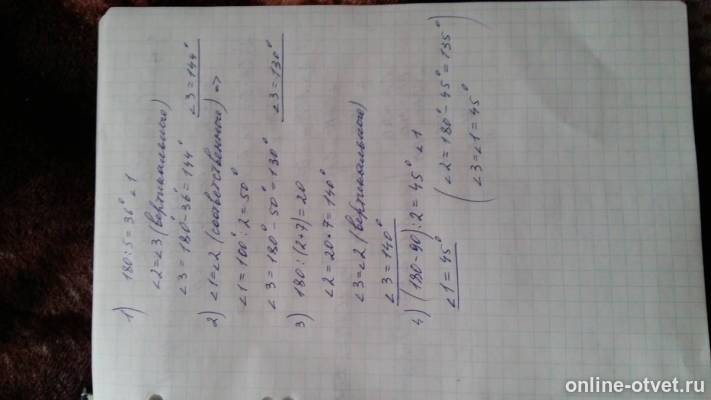 1) 180:5=36° ∠1
∠2=∠3 (вертикального)
∠3=180°-36°=144° ∠3=144°
2) ∠1=∠2 (соответственного) =>
∠1=100°:2=50°
∠3=180°-50°=130° ∠3=130°
3) 180:(2+7)=20
∠2=20*7=140°
∠3=∠2 (вертикального)
∠3=140°
4) (180-90):2=45° ∠1
∠1=45° (∠2=180°-45°=135°
∠3=∠1=45°)
online-otvet.ru